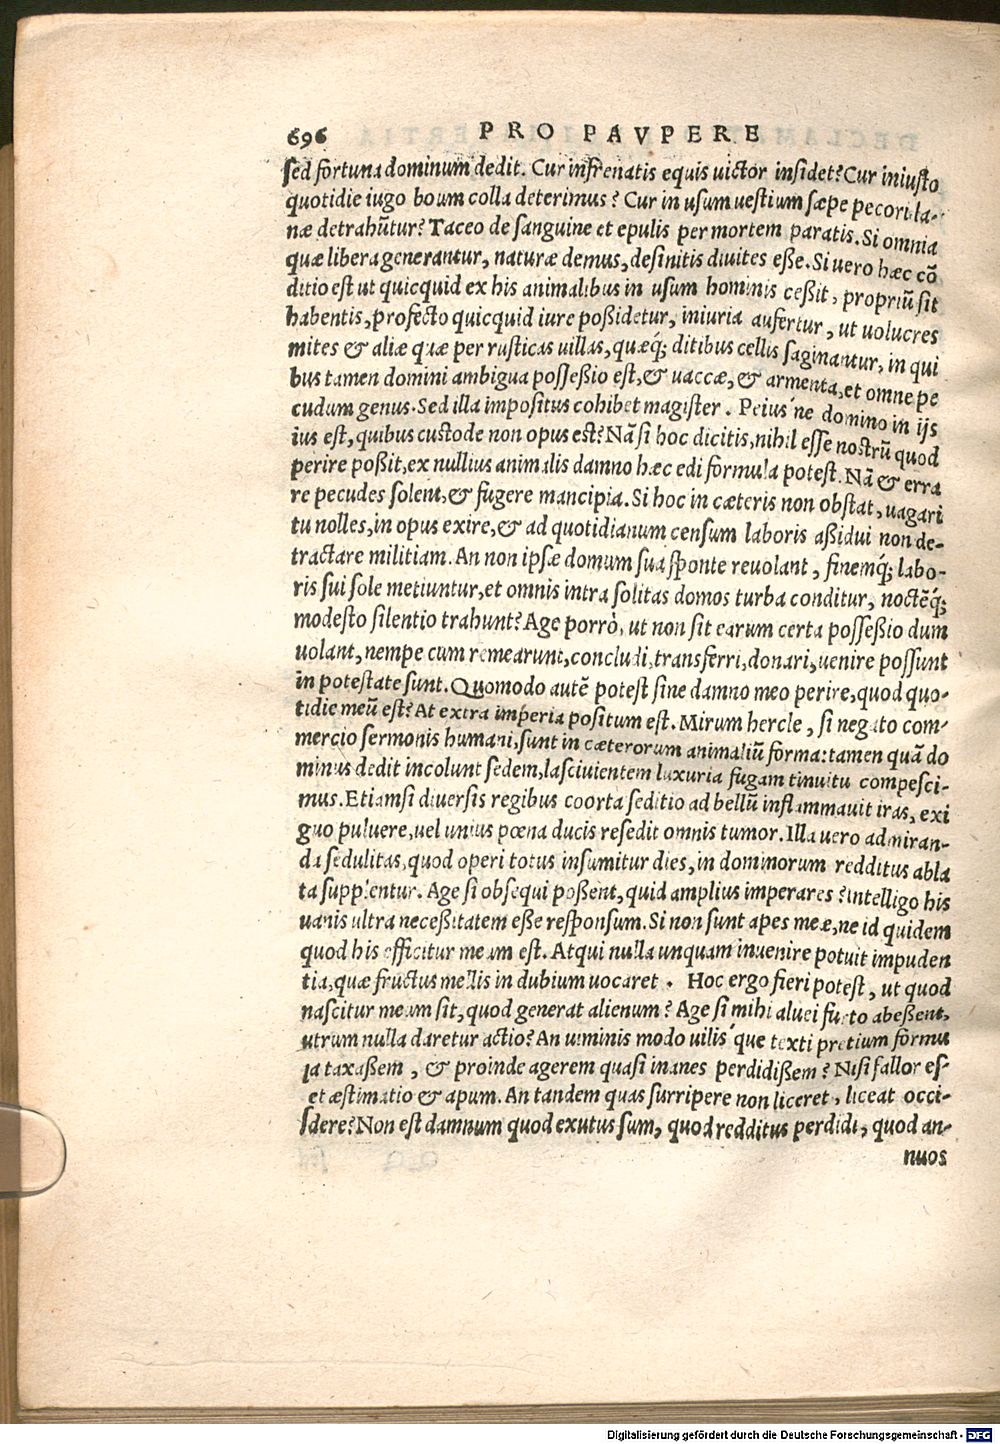 696 PRO PAVPERE
sed fortuna dominum dedit. Cur infrenatis equis uictor insidet? Cur iniusto
quotidie iugo boum colla deterimus? Cur in usum uestium sæpe pecori la-
næ detrahūtur? Taceo de sanguine et epulis per mortem paratis. Si omnia
quæ libera generantur, naturæ demus, desinitis diuites esse. Si uero hæc cō
ditio est ut quicquid ex his animalibus in usum hominis cessit, propriū sit
habentis, profecto quicquid iure possidetur, iniuria aufertur, ut uolucres
mites & aliæ quæ per rusticas uillas, quæq; ditibus cellis saginantur, in qui
bus tamen domini ambigua possessio est, & uaccæ, & armenta, et omne pe
cudum genus. Sed illa impositus cohibet magister. Peius'ne domino in ijs
ius est, quibus custode non opus est? Nā si hoc dicitis, nihil esse nostrū quod
perire possit, ex nullius animalis damno hæc edi formula potest. Nā & erra
re pecudes solent, & fugere mancipia. Si hoc in cæteris non obstat, uagari
tu nolles, in opus exire, & ad quotidianum censum laboris assidui non de-
tractare militiam. An non ipsæ domum sua sponte reuolant, finemq́; labo-
ris sui sole metiuntur, et omnis intra solitas domos turba conditur, noctēq́;
modesto silentio trahunt? Age porrò, ut non sit earum certa possessio dum
uolant, nempe cum remearunt, concludi, transferri, donari, uenire possunt
in potestate sunt. Quomodo autē potest sine damno meo perire, quod quo-
tidie meū est? At extra imperia positum est. Mirum hercle, si negato com-
mercio sermonis humani, sunt in cæterorum animaliū forma: tamen quā do
minus dedit incolunt sedem, lasciuientem luxuria fugam tinuitu compesci-
mus. Etiamsi diuersis regibus coorta seditio ad bellū inflammauit iras, exi
guo puluere, uel unius pœna ducis resedit omnis tumor. Illa uero admiran-
da sedulitas, quod operi totus insumitur dies, in dominorum redditus abla
ta supplentur. Age si obsequi possent, quid amplius imperares? intelligo his
uanis ultra necessitatem esse responsum. Si non sunt apes meæ, ne id quidem
quod his efficitur meum est. Atqui nulla unquam inuenire potuit impuden
tia, quæ fructus mellis in dubium uocaret. Hoc ergo fieri potest, ut quod
nascitur meum sit, quod generat alienum? Age si mihi aluei furto abessent,
utrum nulla daretur actio? An uiminis modo uilis'que texti pretium formu
la taxassem, & proinde agerem quasi inanes perdidissem? Nisi fallor es-
et æstimatio & apum. An tandem quas surripere non liceret, liceat occi-
dere? Non est damnum quod exutus sum, quod redditus perdidi, quod an-
nuos
Digitalisierung gefördert durch die Deutsche Forschungsgemeinschaft - DFG